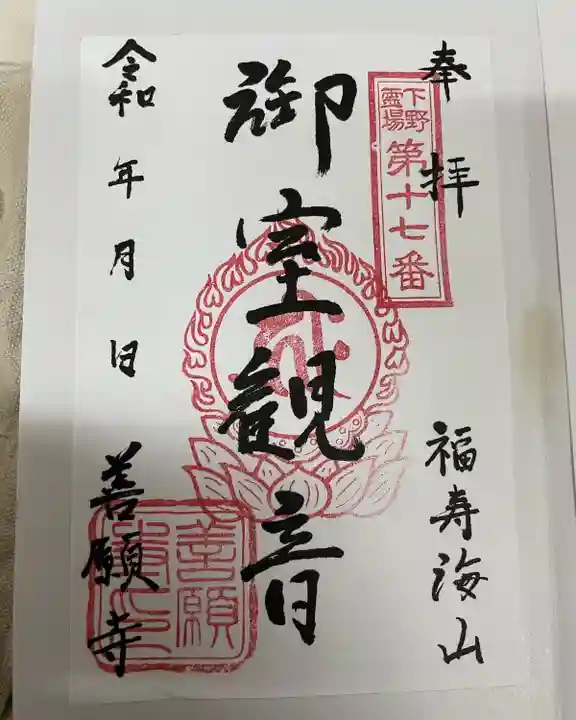 奉拝
下野
霊場
第十七番
福寿海山
御室観音
令和 年 月 日
善願寺
善願
寺之印